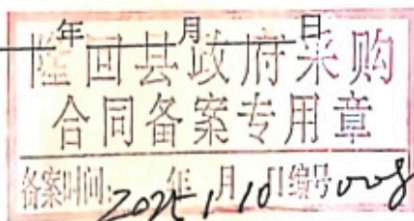 年 月 日
隆回县政府采购
合同备案专用章
备案时间: 2025年1月10日编号008